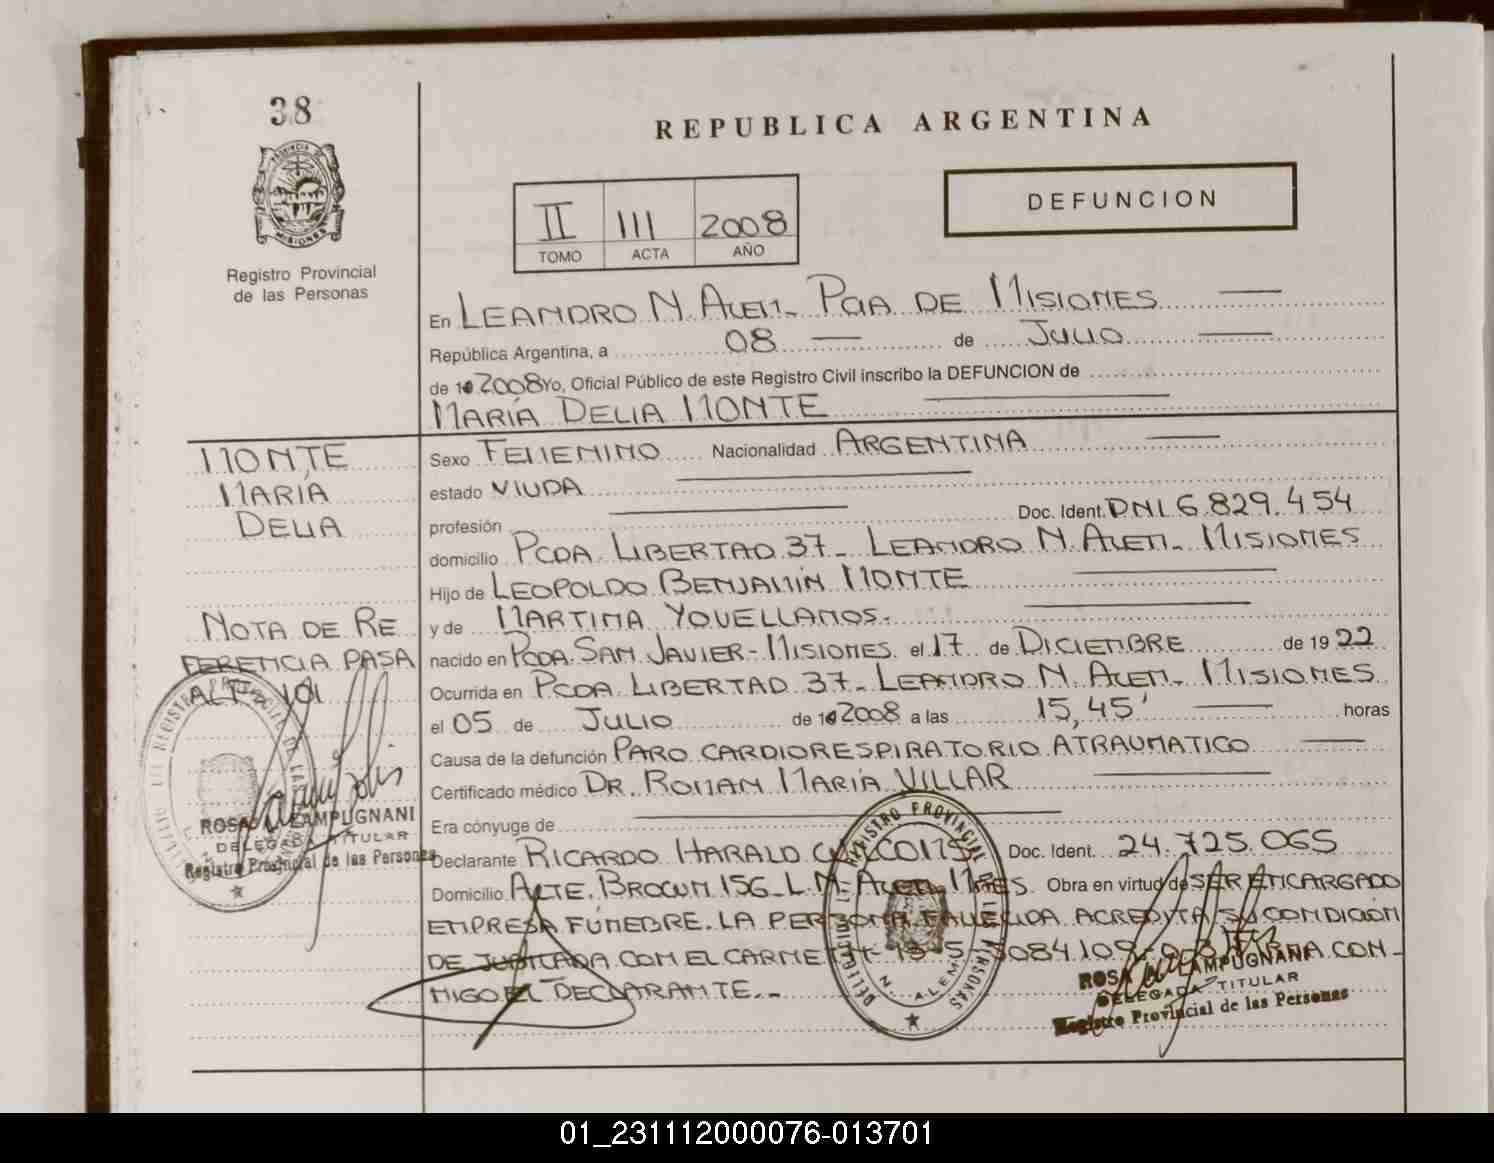 38
REPUBLICA ARGENTINA
PROVINCIA DE
MISIONES
DEFUNCION
II 111 2008
TOMO ACTA AÑO
Registro Provincial
de las Personas
En LEANDRO N. ALEM - PCIA DE MISIONES
República Argentina, a 08 de JULIO
de 2008 Yo, Oficial Público de este Registro Civil inscribo la DEFUNCION de
MARÍA DELIA MONTE
MONTE
MARÍA
DELIA
Sexo FEMENINO Nacionalidad ARGENTINA
estado VIUDA
profesión Doc. Ident. DNI 6.829.454
domicilio PCDA. LIBERTAD 37 - LEANDRO N. ALEM - MISIONES
Hijo de LEOPOLDO BENJAMÍN MONTE
y de MARTINA YOVELLANOS.
nacido en PCDA. SAN JAVIER - MISIONES el 17 de DICIEMBRE de 1922
Ocurrida en PCDA. LIBERTAD 37 - LEANDRO N. ALEM - MISIONES
el 05 de JULIO de 2008 a las 15,45' horas
Causa de la defunción PARO CARDIORESPIRATORIO ATRAUMATICO
Certificado médico DR. ROMAN MARÍA VILLAR
Era cónyuge de
Declarante RICARDO HARALD Doc. Ident. 24.725.065
Domicilio ALTE. BROWN 156 - L. N. ALEM - MNES. Obra en virtud de SER ENCARGADO
EMPRESA FÚNEBRE. LA PERSONA FALLECIDA ACREDITA SU CONDICIÓN
DE JUBILADA CON EL CARNET FIRMA CON-
MIGO EL DECLARANTE.-
NOTA DE RE
FERENCIA PASA
AL Tº 101
ROSA LAMPUGNANI
DELEGADA TITULAR
Registro Provincial de las Personas
REGISTRO PROVINCIAL DE LAS PERSONAS
N. ALEM
ROSA LAMPUGNANI
DELEGADA TITULAR
Registro Provincial de las Personas
01_231112000076-013701